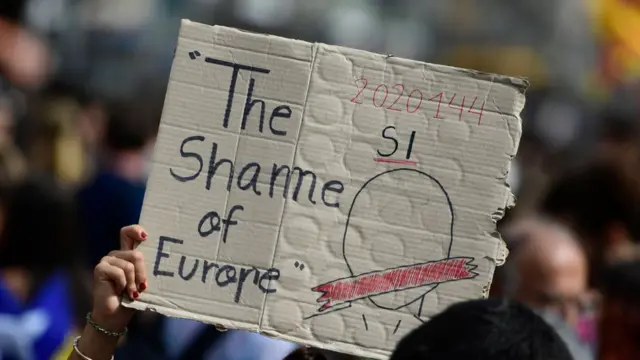 "The
Shanne
of
Europe"
2020144
SI